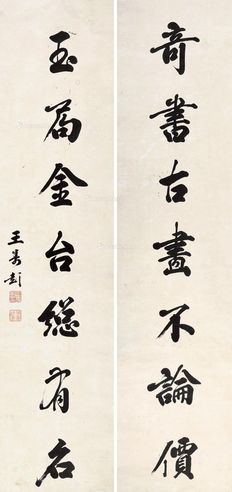 奇書古畫不論價
玉筍金台總有名
王壽彭